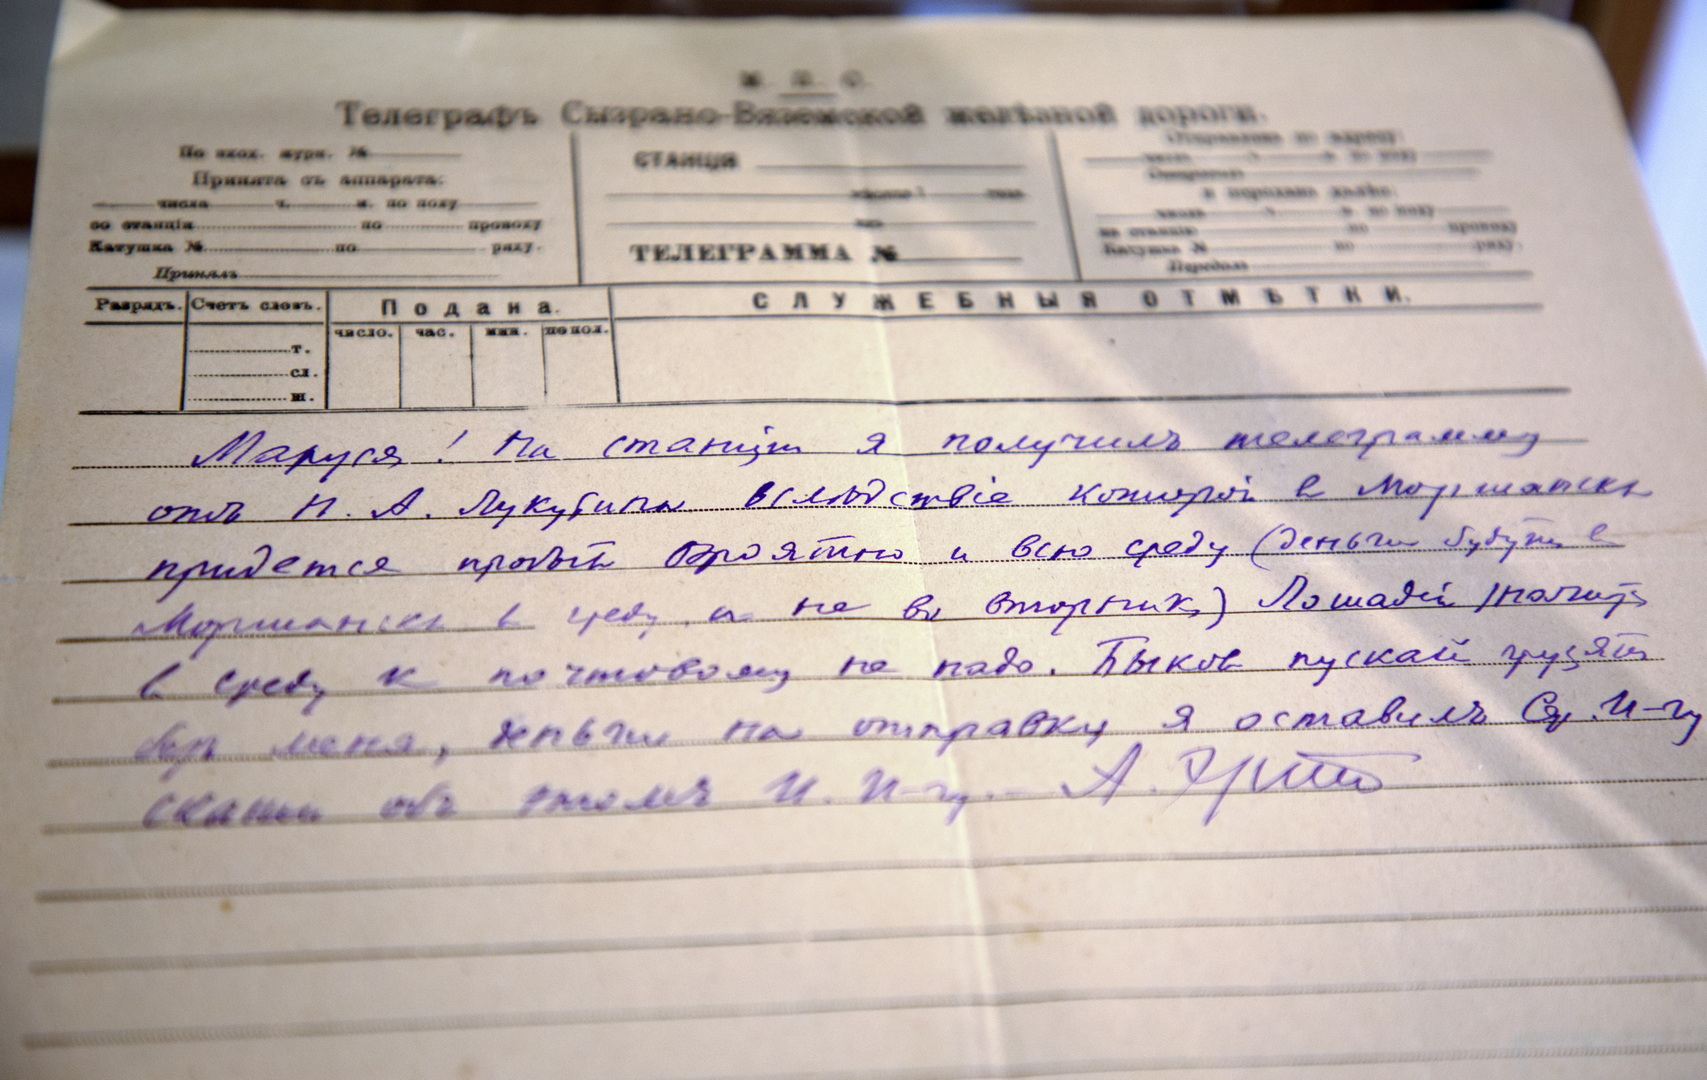 М. П. С.
Телеграфъ Сызрано-Вяземской желѣзной дороги.
По вход. журн. №
Принята съ аппарата:
числа ч. м. по полу
со станціи по проводу
Катушка № по ряду.
Принялъ
СТАНЦІЯ
ТЕЛЕГРАММА №
Отправлена по адресу:
и передана далѣе:
число ч. м. по полу
на станцію по проводу
Катушка № по ряду.
Передалъ
Разрядъ. Счетъ словъ. Подана. СЛУЖЕБНЫЯ ОТМѢТКИ.
число. час. мин. по пол.
т.
сл.
ш.
Маруся! На станціи я получилъ телеграмму
отъ Н. А. Лукутина вслѣдствіе которой в Моршанскѣ
придется пробыть вѣроятно и всю среду (деньги будутъ в
Моршанскѣ в среду, а не во вторникъ) Лошадей
в среду к почтовому не надо. Быков пускай грузятъ
безъ меня, деньги на отправку я оставилъ И-чу
скажи объ этомъ И. И-чу. — А.